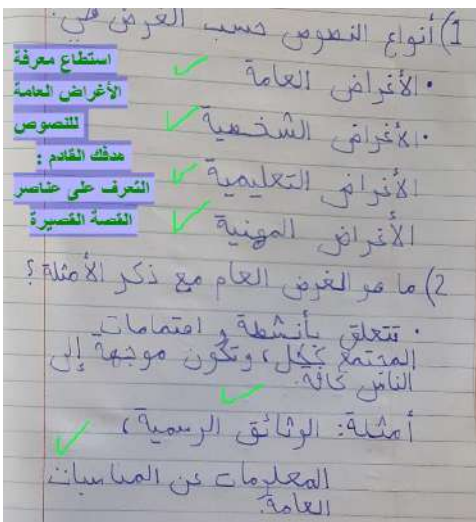 1) أنواع النصوص حسب الغرض هي:
• الأغراض العامة
• الأغراض الشخصية
الأغراض التعليمية
الأغراض المهنية
استطاع معرفة
الأغراض العامة
للنصوص
هدفك القادم :
التعرف على عناصر
القصة القصيرة
2) ما هو الغرض العام مع ذكر الأمثلة؟
• تتعلق بأنشطة و اهتمامات
المجتمع ككل، وتكون موجهة إلى
الناس كافة.
أمثلة: الوثائق الرسمية،
المعلومات عن المناسبات
العامة.